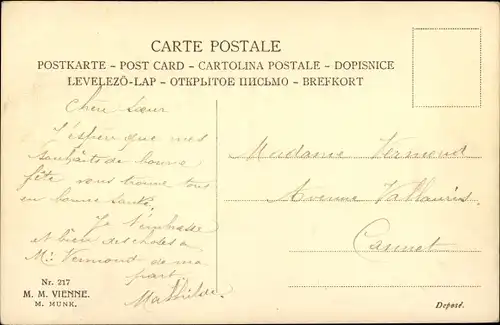 CARTE POSTALE
POSTKARTE – POST CARD – CARTOLINA POSTALE – DOPISNICE
LEVELEZŐ-LAP – ОТКРЫТОЕ ПИСЬМО – BREFKORT
Chère Sœur
J'espère que mes
souhaits de bonne
fête vous trouve tous
en bonne santé.
Je t'embrasse
et bien des choses à
Mr Vermond de ma
part
Mathilde
Madame Vermond
Avenue Vallauris
Cannet
Nr. 217
M. M. VIENNE.
M. MUNK.
Deposé.